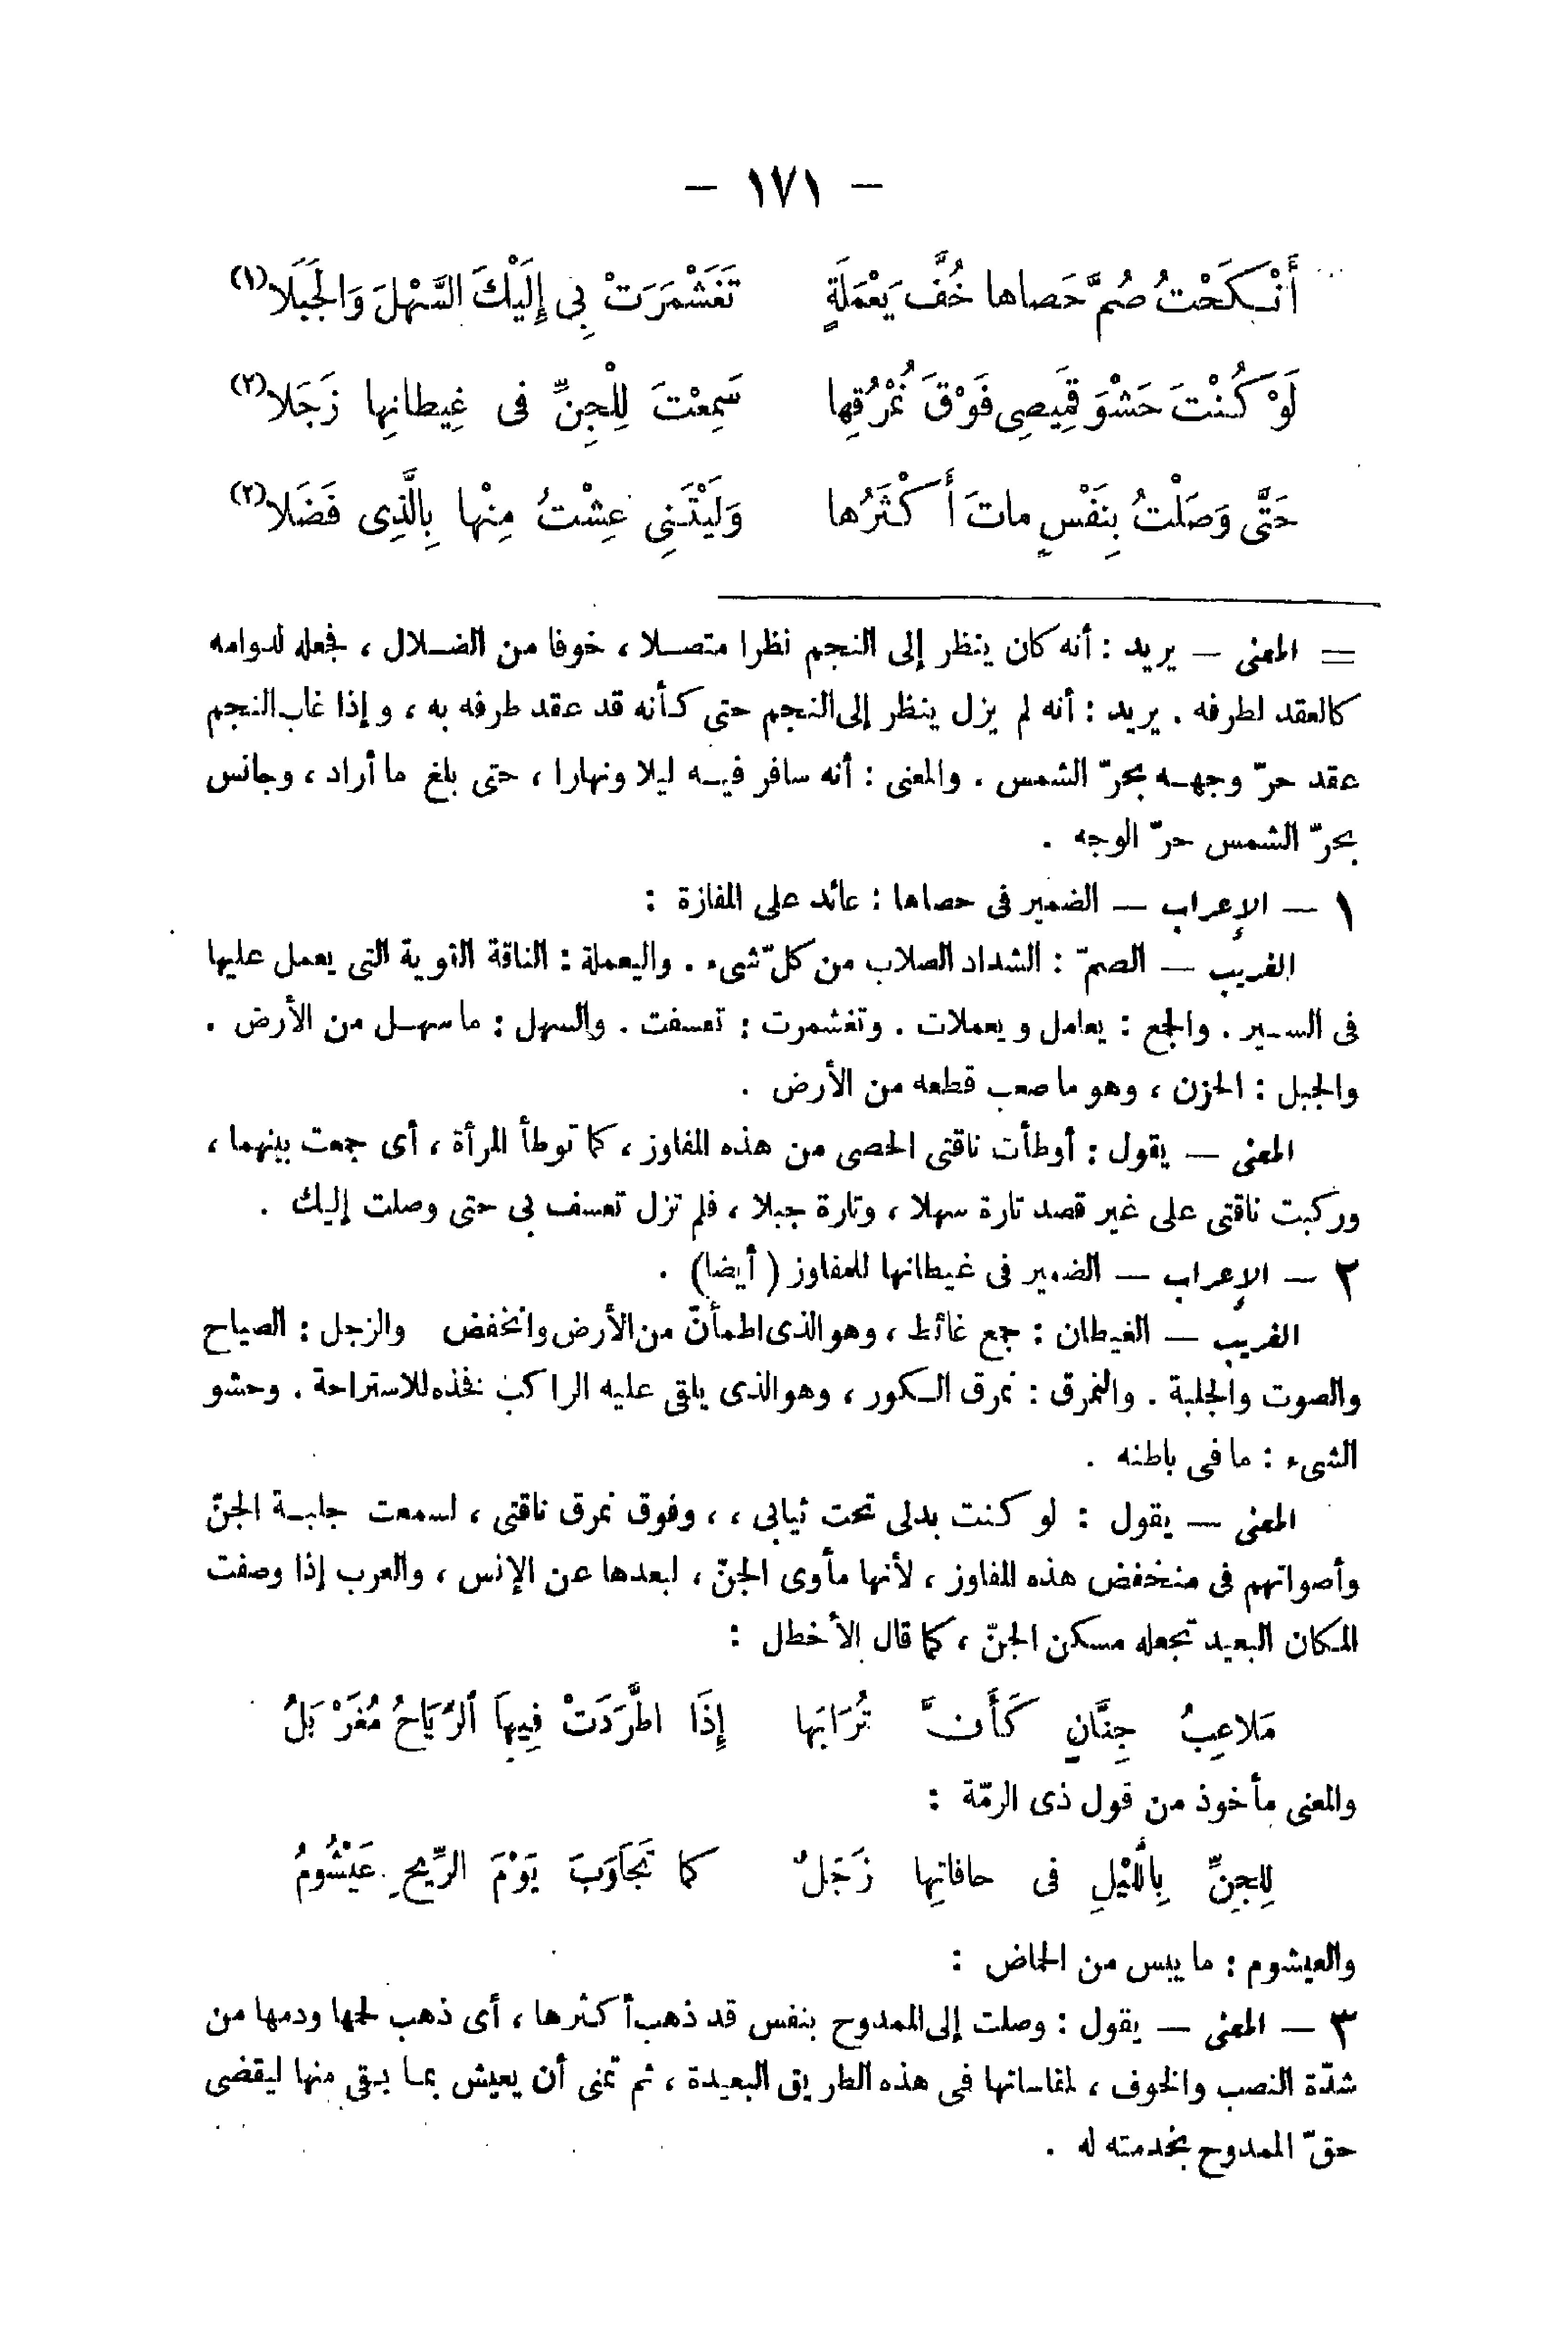 — ١٧١ —
أَنْكَحْتُ صُمَّ حَصاها خُفَّ يَعْمَلَةٍ تَغَشْمَرَتْ بِى إِلَيْكَ السَّهْلَ وَالْجَبَلَا (١)
لَوْ كُنْتَ حَشْوَ قَمِيصِى فَوْقَ نُمْرُقِها سَمِعْتَ لِلْجِنِّ فى غِيطانِها زَجَلا (٢)
حَتَّى وَصَلْتُ بِنَفْسٍ ماتَ أَكْثَرُها وَلَيْتَنِى عِشْتُ مِنْها بِالَّذِى فَضَلا (٢)
= المعنى — يريد : أنه كان ينظر إلى النجم نظرا متصلا ، خوفا من الضلال ، فجعله لدوامه
كالعقد لطرفه . يريد : أنه لم يزل ينظر إلى النجم حتى كأنه قد عقد طرفه به ، وإذا غاب النجم
عقد حرّ وجهه بحرّ الشمس . والمعنى : أنه سافر فيه ليلا ونهارا ، حتى بلغ ما أراد ، وجانس
بحرّ الشمس حرّ الوجه .
١ — الإعراب — الضمير فى حصاها : عائد على المفازة :
الغريب — الصمّ : الشداد الصلاب من كلّ شىء . واليعملة : الناقة القوية التى يعمل عليها
فى السير . والجمع : يعامل ويعملات . وتغشمرت : تعسفت . والسهل : ما سهل من الأرض .
والجبل : الحزن ، وهو ما صعب قطعه من الأرض .
المعنى — يقول : أوطأت ناقتى الحصى من هذه المفاوز ، كما توطأ المرأة ، أى جمعت بينهما ،
وركبت ناقتى على غير قصد تارة سهلا ، وتارة جبلا ، فلم تزل تعسف بى حتى وصلت إليك .
٢ — الإعراب — الضمير فى غيطانها للمفاوز (أيضا) .
الغريب — الغيطان : جمع غائط ، وهو الذى اطمأنّ من الأرض وانخفض والزجل : الصياح
والصوت والجلبة . والنمرق : نمرق الكور ، وهو الذى يلقى عليه الراكب فخذه للاستراحة . وحشو
الشىء : ما فى باطنه .
المعنى — يقول : لو كنت بدلى تحت ثيابى ، ، وفوق نمرق ناقتى ، لسمعت جلبة الجنّ
وأصواتهم فى منخفض هذه المفاوز ، لأنها مأوى الجنّ ، لبعدها عن الإنس ، والعرب إذا وصفت
المكان البعيد تجعله مسكن الجنّ ، كما قال الأخطل :
مَلاعِبُ جِنَّانٍ كَأَنَّ تُرَابَها إِذَا اطَّرَدَتْ فِيهَا الرِّيَاحُ مُغَرْبَلُ
والمعنى مأخوذ من قول ذى الرمّة :
لِلجِنِّ بِاللَّيْلِ فى حافاتِها زَجَلٌ كما تَجَاوَبَ يَوْمَ الرِّيحِ عَيْشُومُ
والعيشوم : ما يبس من الحماض :
٣ — المعنى — يقول : وصلت إلى الممدوح بنفس قد ذهب أكثرها ، أى ذهب لحمها ودمها من
شدّة النصب والخوف ، لمقاساتها فى هذه الطريق البعيدة ، ثم تمنى أن يعيش بما بقى منها ليقضى
حقّ الممدوح بخدمته له .